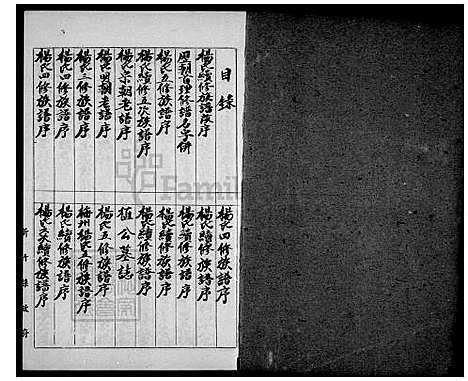 目錄
楊氏續修族譜跋序
歷朝首理修譜名字併
楊氏五修族譜序
楊氏續修五次族譜序
楊氏宋朝老譜序
楊氏明朝老譜序
楊氏三修族譜序
楊氏四修族譜序
楊氏四修族譜序
楊氏四修族譜序
楊氏續修族譜序
楊氏續修族譜序
楊氏續修族譜序
楊氏續修族譜序
植公墓誌
楊氏五修族譜序
梅州楊氏五修族譜序
楊氏續修族譜序
楊氏又續修族譜序